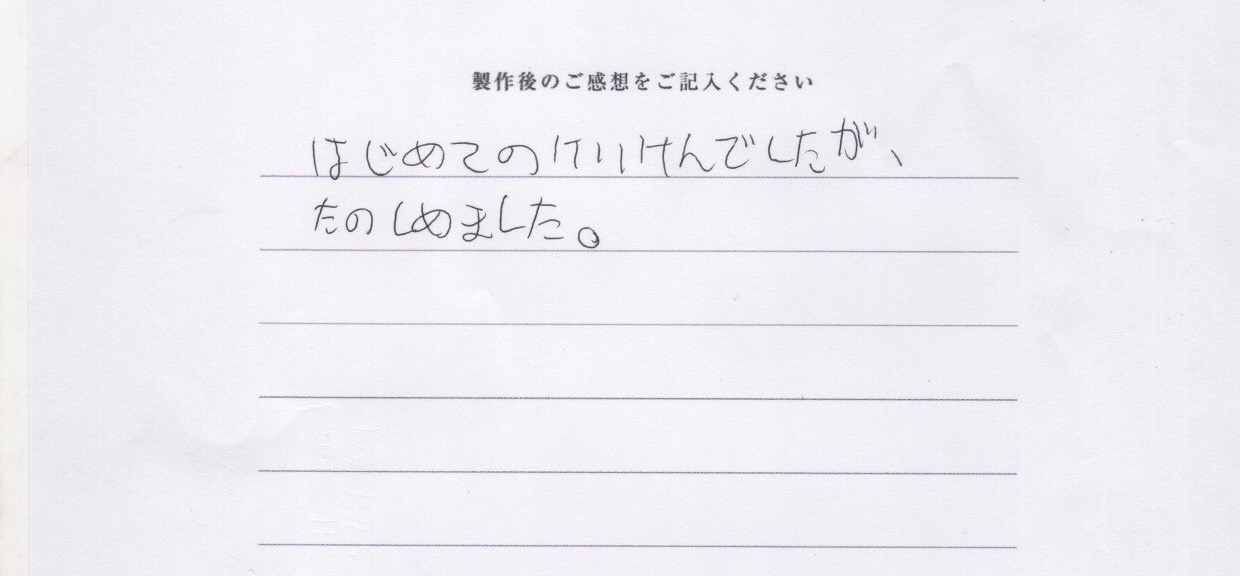 製作後のご感想をご記入ください
はじめてのけいけんでしたが、
たのしめました。